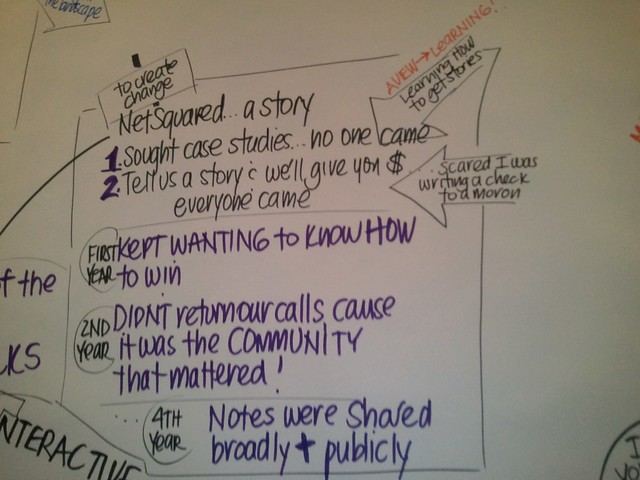 the landscape
A VIEW → LEARNING!
Learning How
to get stories
to create
change
NetSquared... a story
1. Sought case studies... no one came
2. Tell us a story & we'll give you $....
everyone came
scared I was
writing a check
to a moron
FIRST YEAR
KEPT WANTING to KNOW HOW
to win
2ND YEAR
DIDNT return our calls cause
it was the COMMUNITY
that mattered!
... 4TH YEAR
Notes were shared
broadly + publicly
f the
CKS
NTERACTIVE